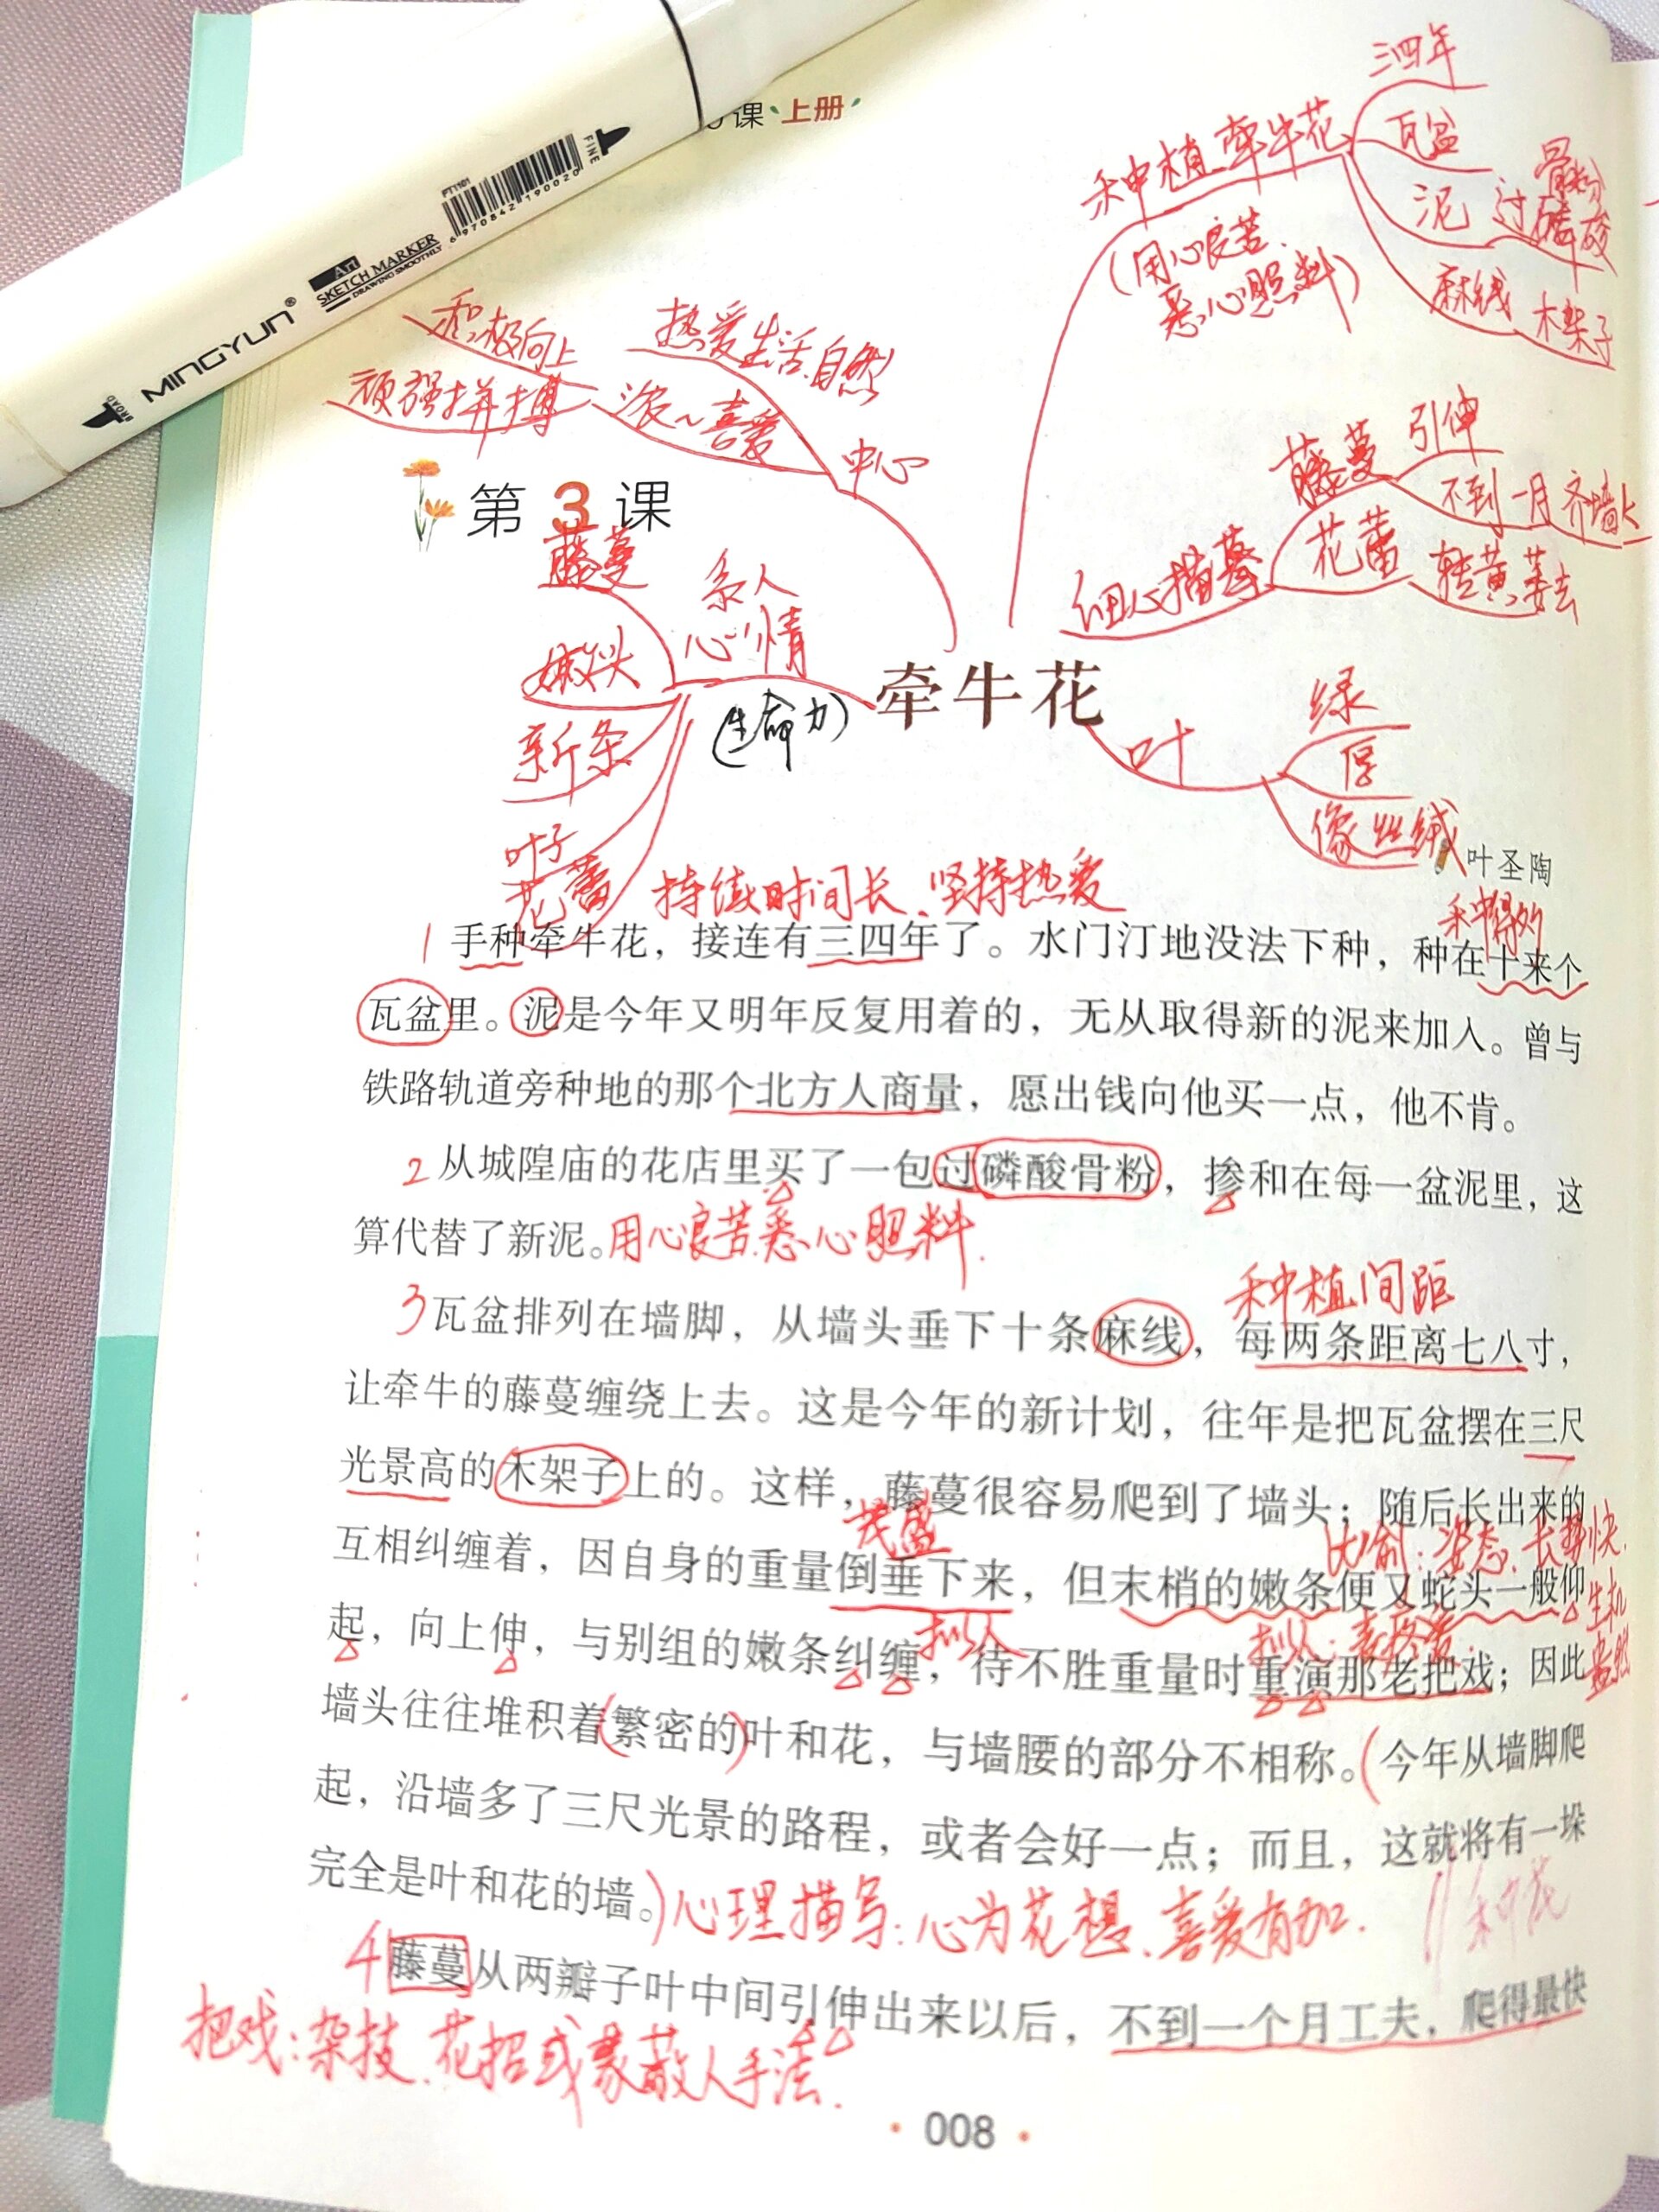 课 上册
MINGYUN®
Art
SKETCH MARKER
DRAWING SMOOTHLY
BROAD
FINE
PT1101
6 970842 190020
三四年
瓦盆
种植牵牛花
泥 过磷酸
骨粉
麻线 木架子
(用心良苦.
悉心照料)
积极向上
顽强拼搏
热爱生活.自然
浓~喜爱
中心
第3课
藤蔓
嫩头
新条
叶子
花蕾
系人
心情
(生命力)
藤蔓
引伸
不到一月 齐墙头
细心描摹
花蕾
转黄萎去
牵牛花
叶
绿
厚
像丝绒
叶圣陶
持续时间长、坚持热爱
种得多
1 手种牵牛花，接连有三四年了。水门汀地没法下种，种在十来个
瓦盆里。泥是今年又明年反复用着的，无从取得新的泥来加入。曾与
铁路轨道旁种地的那个北方人商量，愿出钱向他买一点，他不肯。
2 从城隍庙的花店里买了一包过磷酸骨粉，掺和在每一盆泥里，这
算代替了新泥。用心良苦.悉心照料.
种植间距
3 瓦盆排列在墙脚，从墙头垂下十条麻线，每两条距离七八寸，
让牵牛的藤蔓缠绕上去。这是今年的新计划，往年是把瓦盆摆在三尺
光景高的木架子上的。这样，藤蔓很容易爬到了墙头；随后长出来的
茂盛
比喻：姿态、长势快.
生机
盎然
互相纠缠着，因自身的重量倒垂下来，但末梢的嫩条便又蛇头一般仰
拟人
拟人：喜爱.
起，向上伸，与别组的嫩条纠缠，待不胜重量时重演那老把戏；因此
墙头往往堆积着(繁密的)叶和花，与墙腰的部分不相称。(今年从墙脚爬
起，沿墙多了三尺光景的路程，或者会好一点；而且，这就将有一垛
完全是叶和花的墙。)心理描写：心为花想、喜爱有加.
// 种花
4 藤蔓从两瓣子叶中间引伸出来以后，不到一个月工夫，爬得最快
把戏：杂技.花招或蒙蔽人手法.
008